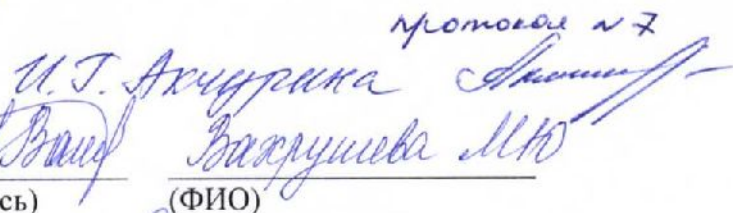 протокол № 7
И. Г. Акчурина
Вахрушева МЮ
сь) (ФИО)